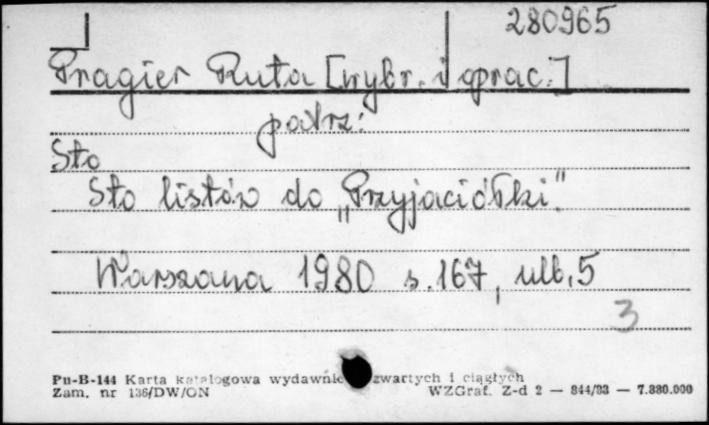 280965
Pragier Ruta [wybr. i oprac.]
patrz:
Sto
Sto listów do „Przyjaciółki".
Warszawa 1980 s. 167, nlb. 5
3
Pu-B-144 Karta katalogowa wydawnic zwartych i ciągłych
Zam. nr 136/DW/ON WZGraf. Z-d 2 — 844/83 — 7.880.000